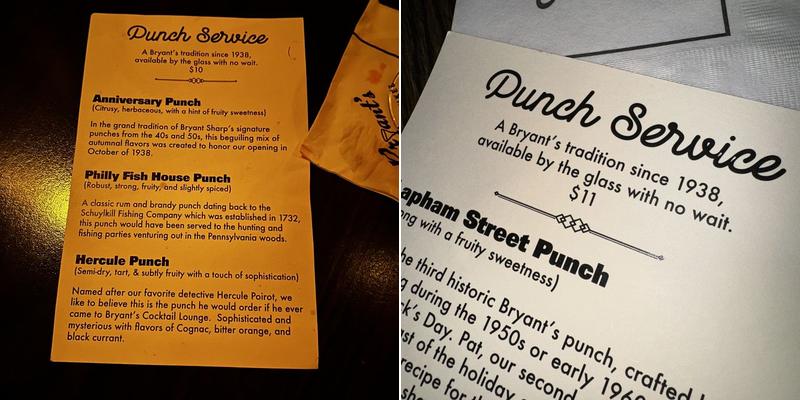 Punch Service
A Bryant's tradition since 1938,
available by the glass with no wait.
$10
Anniversary Punch
(Citrusy, herbaceous, with a hint of fruity sweetness)
In the grand tradition of Bryant Sharp's signature
punches from the 40s and 50s, this beguiling mix of
autumnal flavors was created to honor our opening in
October of 1938.
Philly Fish House Punch
(Robust, strong, fruity, and slightly spiced)
A classic rum and brandy punch dating back to the
Schuylkill Fishing Company which was established in 1732,
this punch would have been served to the hunting and
fishing parties venturing out in the Pennsylvania woods.
Hercule Punch
(Semi-dry, tart, & subtly fruity with a touch of sophistication)
Named after our favorite detective Hercule Poirot, we
like to believe this is the punch he would order if he ever
came to Bryant's Cocktail Lounge. Sophisticated and
mysterious with flavors of Cognac, bitter orange, and
black currant.
Bryant's
Punch Service
A Bryant's tradition since 1938,
available by the glass with no wait.
$11
apham Street Punch
ong with a fruity sweetness)
he third historic Bryant's punch, crafted
g during the 1950s or early 196
ck's Day. Pat, our second
ast of the holiday
recipe for th